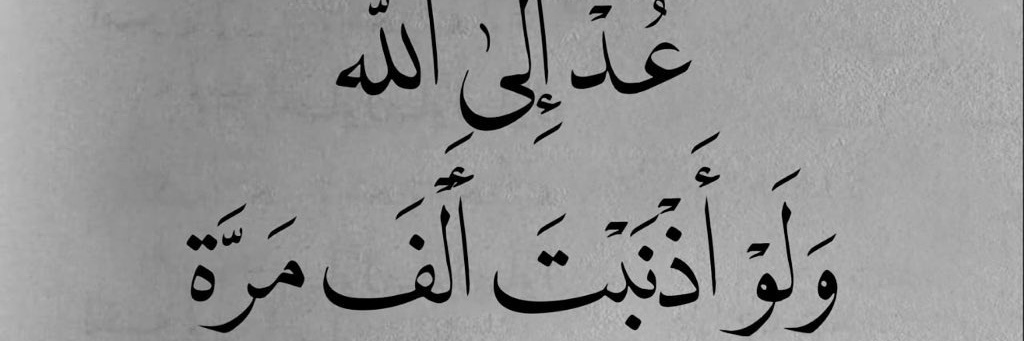 عُدْ إِلىٰ اللّه
وَلَوْ أَذْنَبْتَ أَلفَ مَرَّة